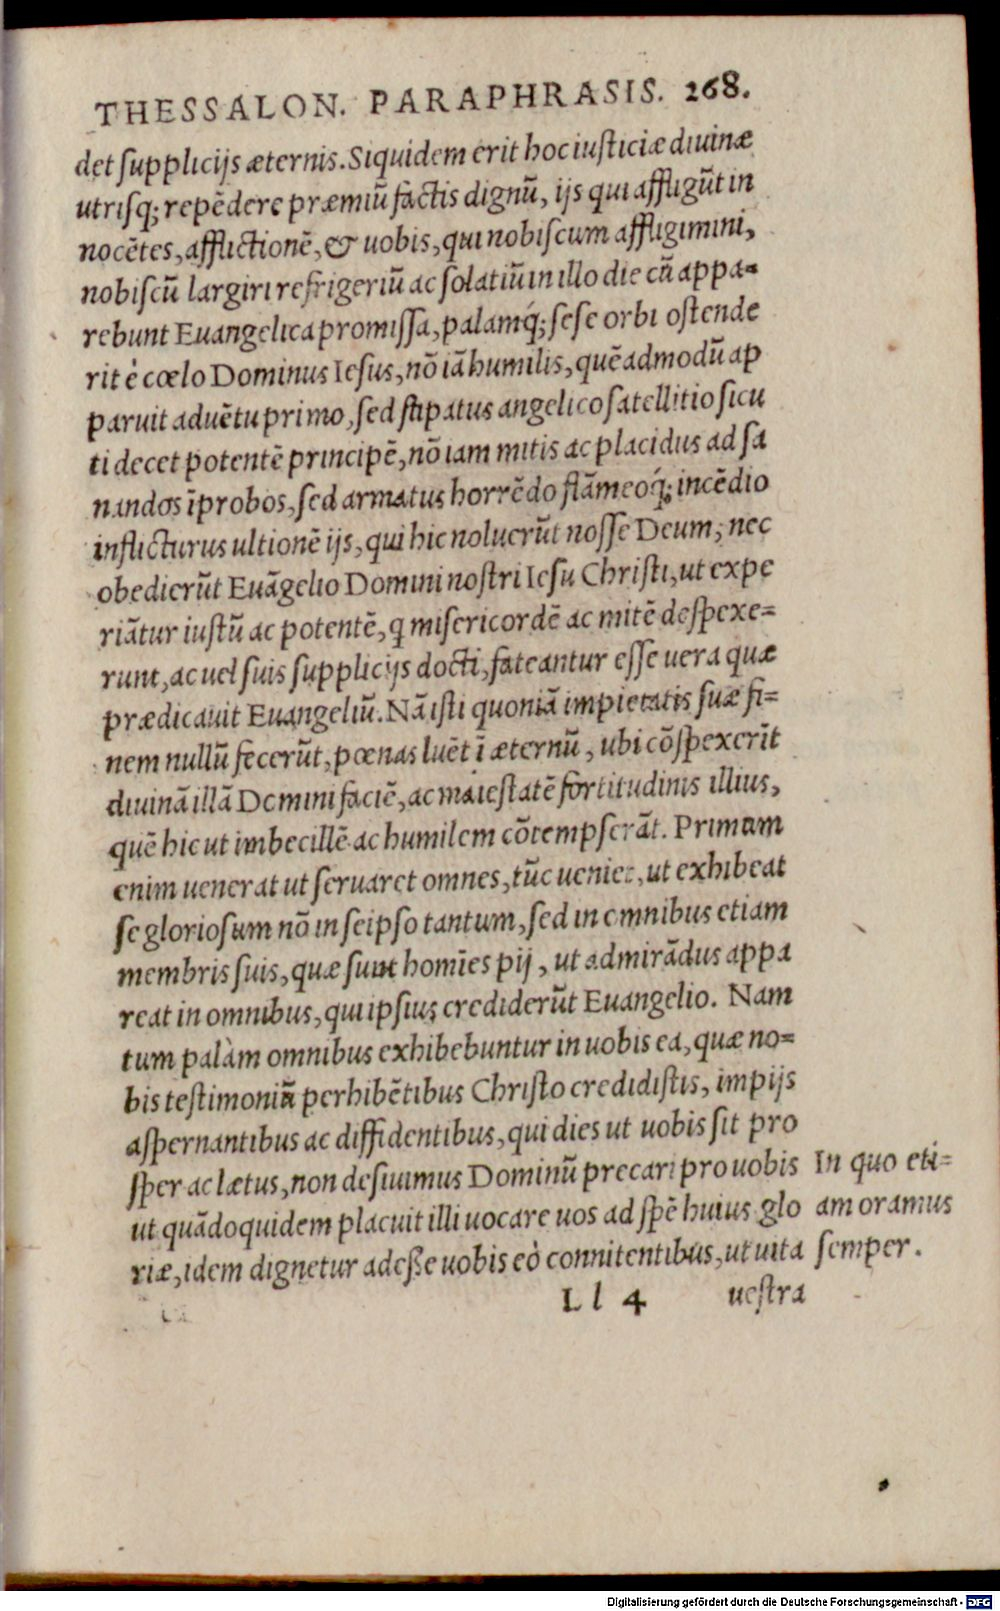 THESSALON. PARAPHRASIS. 268.
det supplicijs æternis. Siquidem erit hoc iusticiæ diuinæ
utrisq; repēdere præmiū factis dignū, ijs qui affligūt in
nocētes, afflictionē, & uobis, qui nobiscum affligimini,
nobiscū largiri refrigeriū ac solatiū in illo die cū appa-
rebunt Euangelica promissa, palamq́; sese orbi ostende
rit è cœlo Dominus Iesus, nō iā humilis, quēadmodū ap
paruit aduētu primo, sed stipatus angelico satellitio sicu
ti decet potentē principē, nō iam mitis ac placidus ad sa
nandos īprobos, sed armatus horrēdo flāmeoq́; incēdio
inflicturus ultionē ijs, qui hic noluerūt nosse Deum, nec
obedierūt Euāgelio Domini nostri Iesu Christi, ut expe
riātur iustū ac potentē, q misericordē ac mitē despexe-
runt, ac uel suis supplicijs docti, fateantur esse uera quæ
prædicauit Euangeliū. Nā isti quoniā impietatis suæ fi-
nem nullū fecerūt, pœnas luēt ī æternū, ubi cōspexerīt
diuinā illā Domini faciē, ac maiestatē fortitudinis illius,
quē hic ut imbecillē ac humilem cōtempserāt. Primum
enim uenerat ut seruaret omnes, tūc ueniet, ut exhibeat
se gloriosum nō in seipso tantum, sed in omnibus etiam
membris suis, quæ sunt homīes pij, ut admirādus appa
reat in omnibus, qui ipsius crediderūt Euangelio. Nam
tum palàm omnibus exhibebuntur in uobis ea, quæ no-
bis testimoniū perhibētibus Christo credidistis, impijs
aspernantibus ac diffidentibus, qui dies ut uobis sit pro
sper ac lætus, non desiuimus Dominū precari pro uobis
ut quādoquidem placuit illi uocare uos ad spē huius glo
riæ, idem dignetur adesse uobis eò connitentibus, ut uita
In quo eti-
am oramus
semper.
Ll 4 uestra
Digitalisierung gefördert durch die Deutsche Forschungsgemeinschaft - DFG